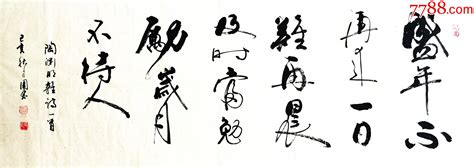 盛年不
再来一日
难再晨
及时当勉
励岁月
不待人
陶渊明杂诗一首
7788.com